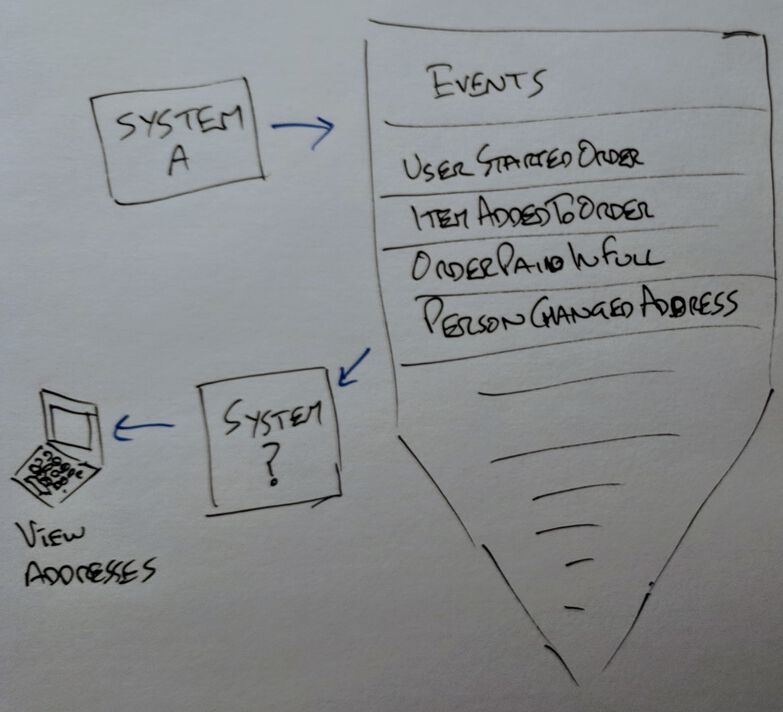 SYSTEM
A
EVENTS
USERSTARTEDORDER
ITEMADDEDTOORDER
ORDERPAIDINFULL
PERSONCHANGEDADDRESS
SYSTEM
?
VIEW
ADDRESSES